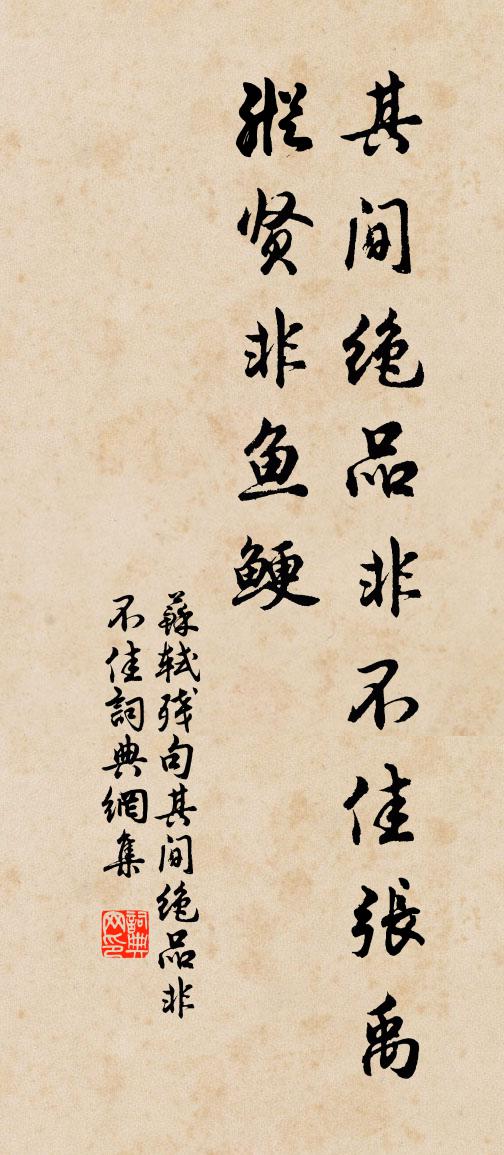 其间绝品非不佳張禹
縱贤非鱼鲠
蘇轼残句其间绝品非
不佳詞典網集
詞典
网印